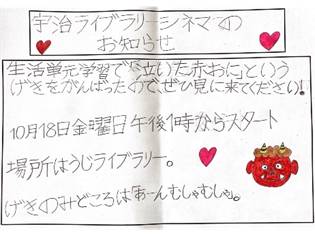 宇治ライブラリーシネマの
お知らせ
生活単元学習で「泣いた赤おに」という
げきをがんばったので、ぜひ見に来てください!
10月18日金曜日午後1時からスタート
場所はうじライブラリー。
げきのみどころは「あーんむしゃむしゃ」。